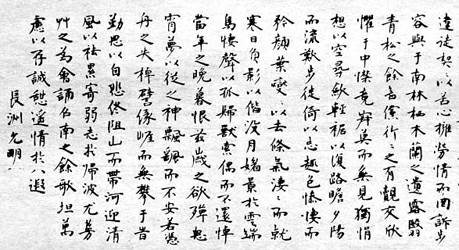 違徒契〻以苦心擁勞情而罔訴步
容與于南林栖木蘭之遺露翳
青松之餘陰儻行〻之有覿交欣
懼于中襟竟寂寞而無見獨悁
想以空尋斂輕裾以復路瞻夕陽
而流歎步徙倚以忘趣色慘悽而
矜顏葉燮〻以去條氣淒〻而就
寒日負影以偕没月媚景於雲端
鳥悽聲以孤歸獸索偶而不還悼
當年之晚暮恨茲歲之欲殫思
宵夢以從之神飄飄而不安若憑
舟之失棹譬緣崖而無攀于昔
勤思以自悲終阻山而帶河迎清
風以袪累寄弱志於歸波尤蔓
艸之為會誦召南之餘歌坦萬
慮以存誠憩遙情於八遐
長洲允明